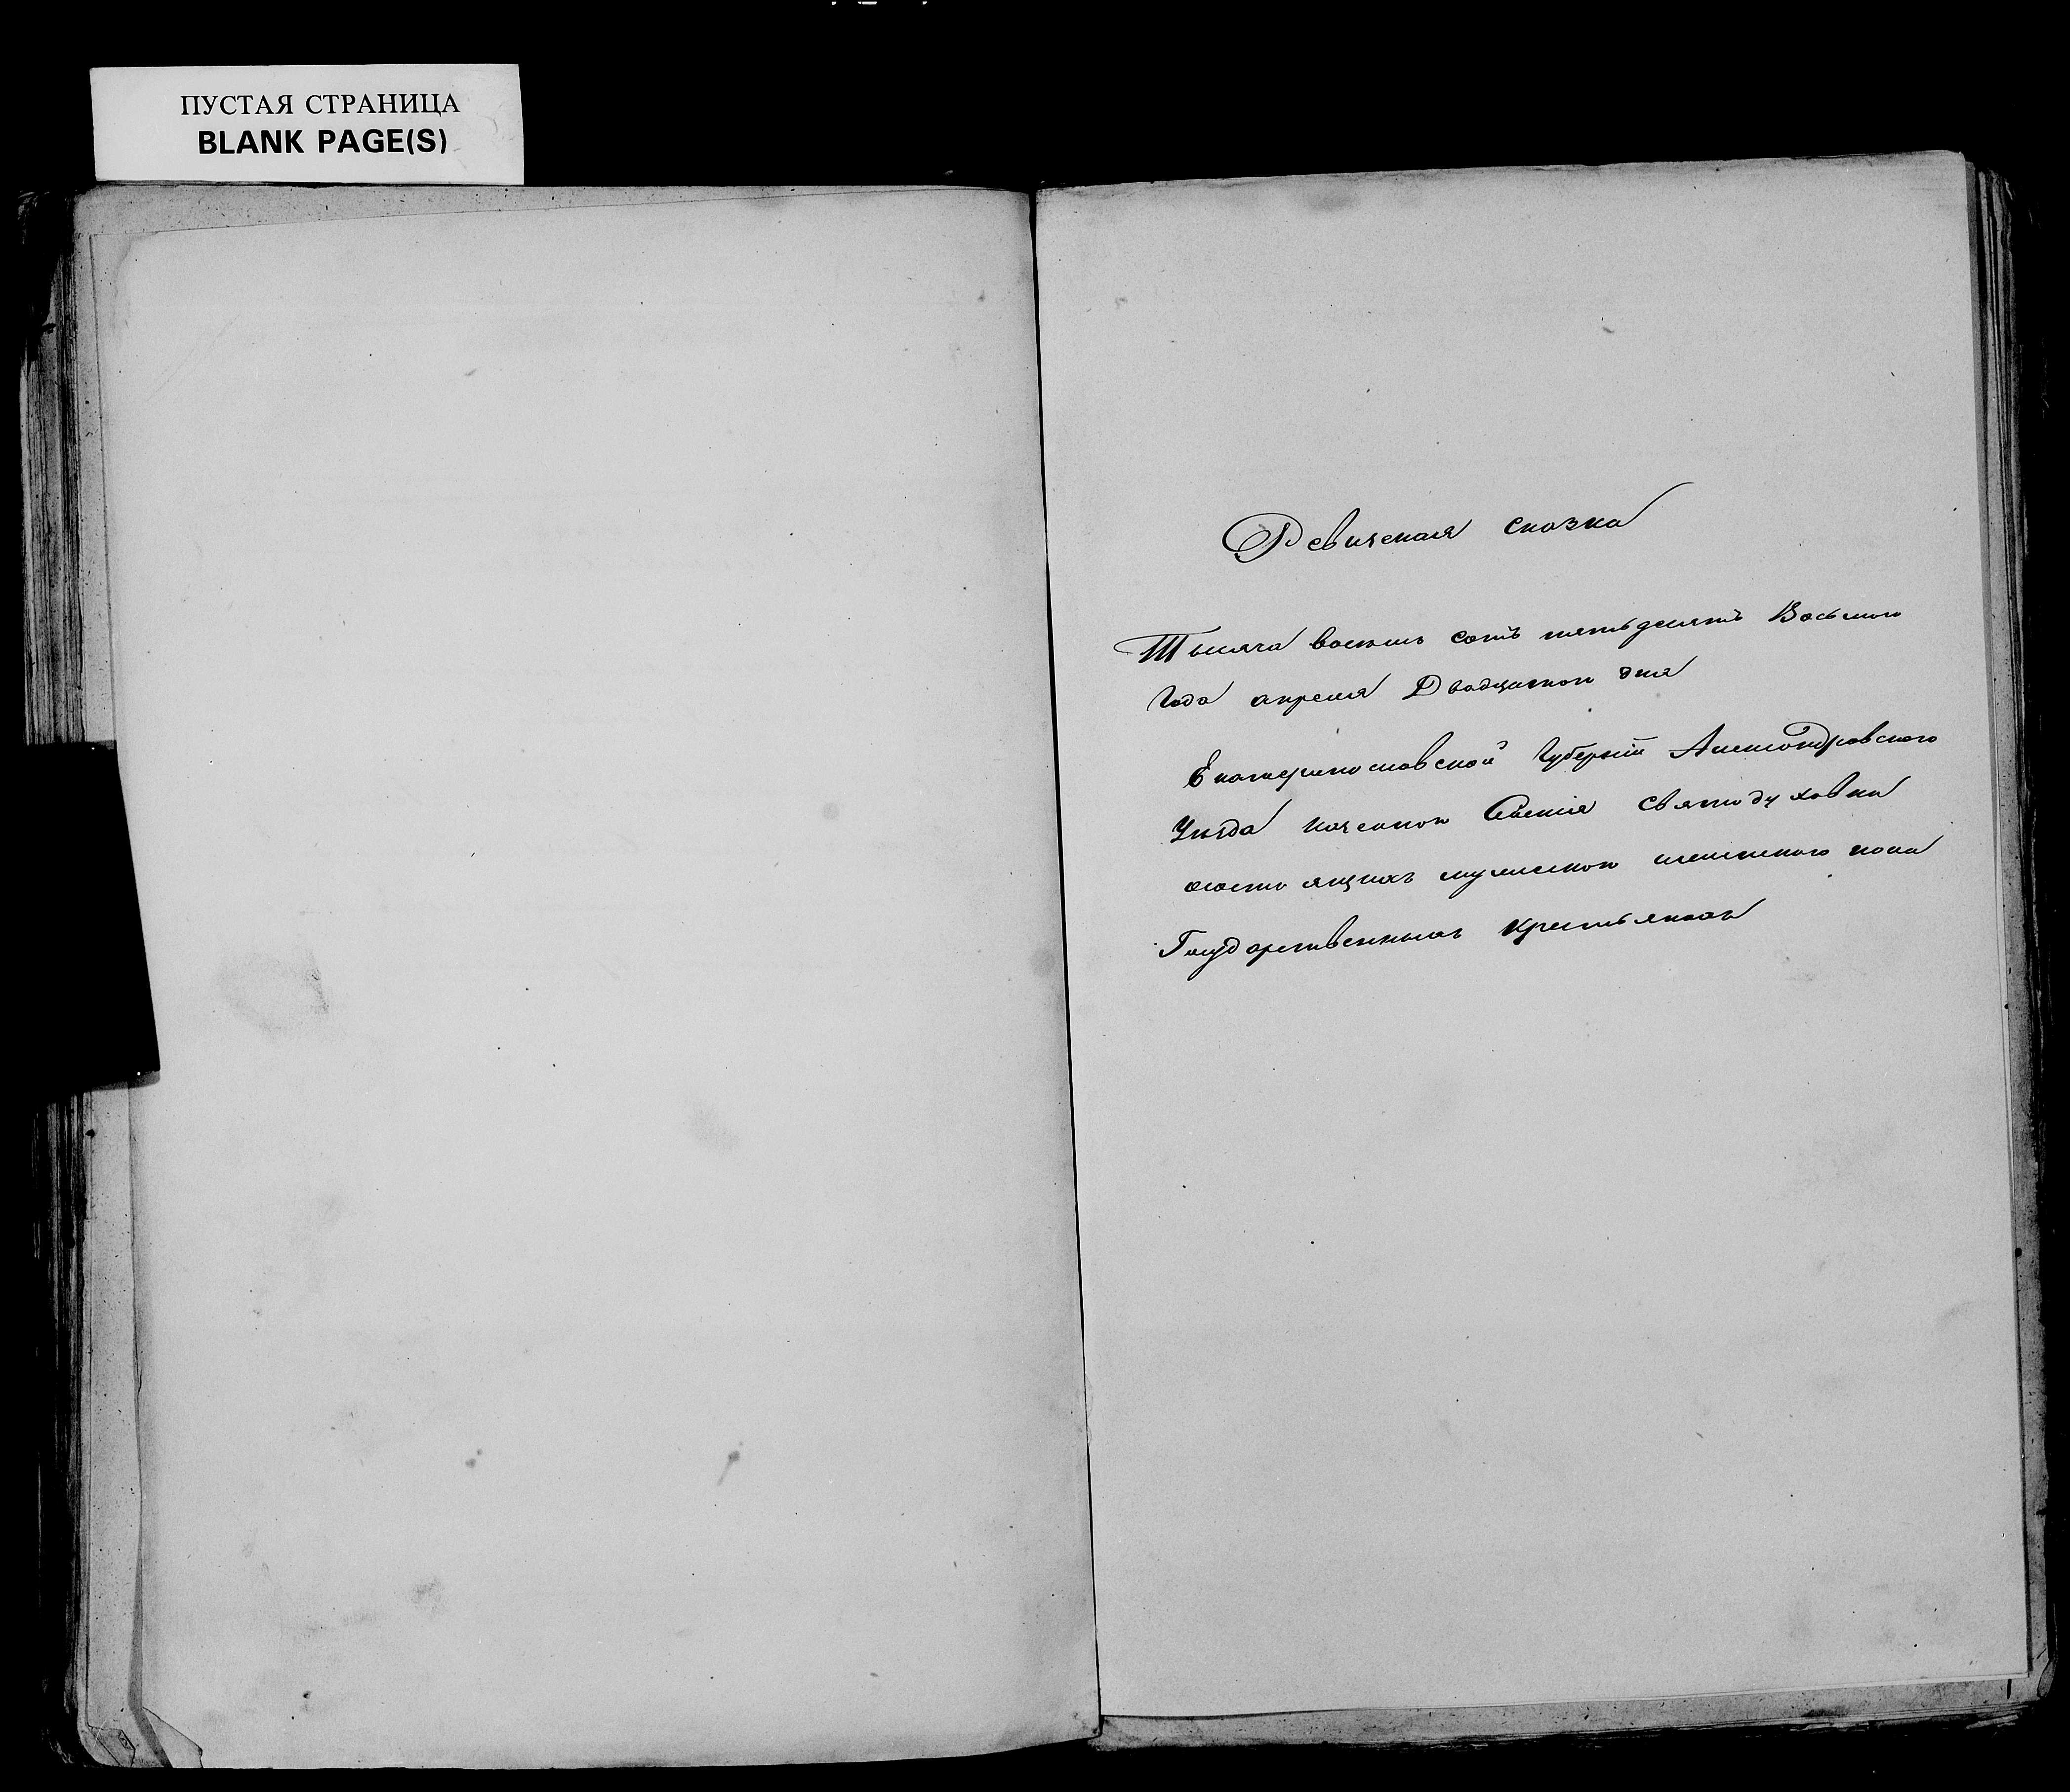 ПУСТАЯ СТРАНИЦА
BLANK PAGE(S)
Ревизская сказка
Тысяча восемь сотъ пятьдесятъ Восьмого
Года апреля Двадцатого дня
Екатеринославской Губерніи Александровского
Уезда казенного Селенія Святодуховки
о состоящихъ мужеского и женского пола
Государственныхъ крестьянахъ